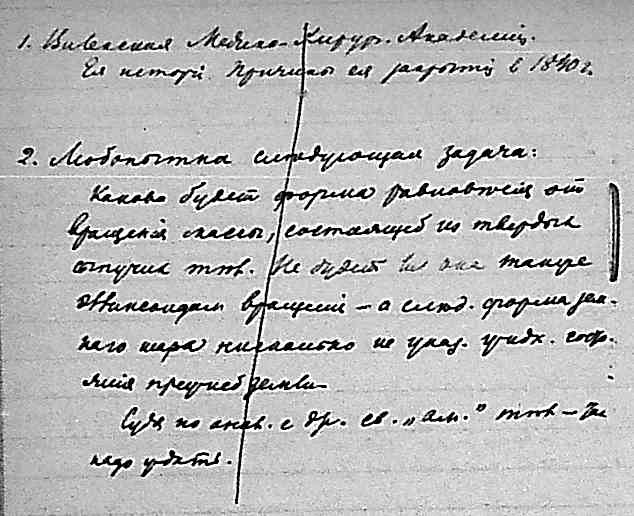 1. Виленская Медико-Хирург. Академія.
Ея исторія. Причины ея закрытія в 1840 г.
2. Любопытна следующая задача:
Какова будет форма равновесія от
вращенія массы, состоящей из твердых
сыпучих тел. Не будет ли она также
эллипсоидом вращенія – а след. форма зем-
наго шара нисколько не указ. жидк. состо-
янія прежней земли
Судя по анал. с др. св. „ " тел –
надо ждать.